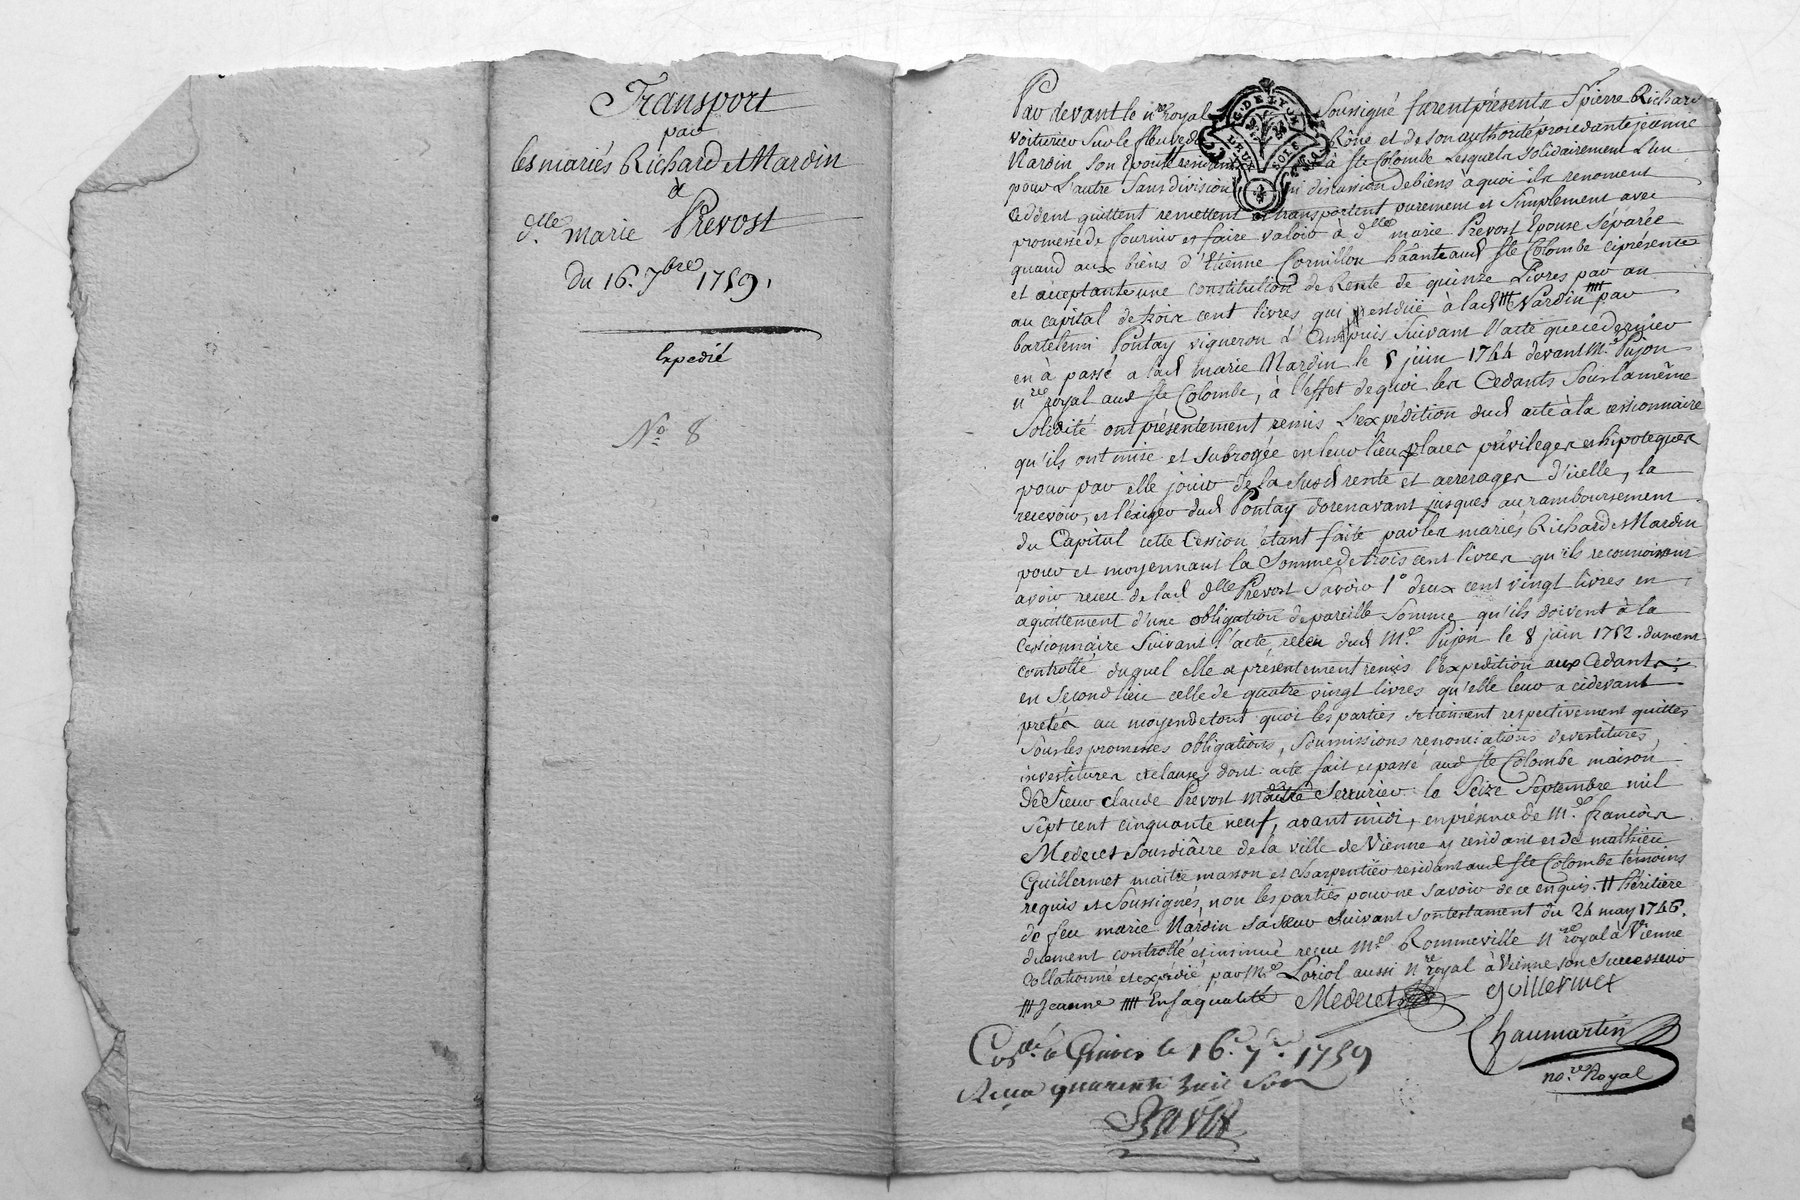 Transport
par
les mariés Richard et Nardin
à
dlle marie Prevost
du 16. 7bre 1759.
Expedié
No 8
Par devant le nre royal Soussigné furent présents Sr pierre Richard
voiturier sur le fleuve du Rône et de son authorité procedante jeanne
Nardin son Epouse residants à Ste Colombe lesquels solidairement l'un
pour l'autre sans division ni discussion de biens à quoi ils renoncent
Cèddent quittent remettent et transportent purement et simplement avec
promesse de fournir et faire valoir à dlle marie Prevost Epouse séparée
quand aux biens d'Etienne Cornillon hâante aud Ste Colombe ciprésente
et acceptante une constitution de Rente de quinze Livres par an
au capital de trois cent livres qui rendüe à lad # Nardin par
bartelemi Pontay vigneron d' suivant l'acte que ce dernier
en à passé a lad marie Nardin le 5 juin 1744 devant Me Pujon
nre royal aud Ste Colombe, à l'effet de quoi les Cedants sous la même
solidité ont présentement remis l'expédition dud acte à la cessionnaire
qu'ils ont mise et subrogée en leur lieu places privileges et hipoteques
pour par elle jouir de la susd rente et arrerages d'icelle, la
recevoir, et l'éxiger dud Pontay dorenavant jusques au ramboursement
du Capital cette Cession étant faite par les mariés Richard et Nardin
pour et moyennant la Somme de trois cent livres qu'ils reconnoissent
avoir receu de lad dlle Prevost Savoir 1° deux cent vingt livres en
aquittement d'une obligation de pareille Somme qu'ils doivent à la
Cessionnaire suivant l'acte receu dud Me Pujon le 8 juin 1752 dument
controllé duquel elle a présentement remis l'expedition aux Cedants
en Second lieu celle de quatre vingt livres qu'elle leur a cidevant
pretés au moyen de tout quoi les parties se tiennent respectivement quittes
sous les promesses obligations, soumissions renonciations devestitures,
investitures et clauses dont acte fait et passé aud Ste Colombe maison
de Sieur Claude Prevost maitre Serrurier le Seize Septembre mil
Sept cent cinquante neuf, avant midi, en présence de Me françois
Mederet Sousdiâcre de la ville de Vienne y residant et de mathieu
Guillermet maitre masson et charpentier residant aud Ste Colombe témoins
requis et Soussignés, non les parties pour ne savoir de ce enquis. # héritière
de feu marie Nardin sa sœur suivant son testament du 24 may 1746.
duement controllé et insinué receu Me Rommeville nre royal à Vienne
Collationné et expédié par Me Loriol aussi nre royal à Vienne son Successeur
# Jeanne # En sa qualité Mederet Guillermet
Chaumartin
nore Royal
le 16e 7re 1759
Receu quarente huit Sols